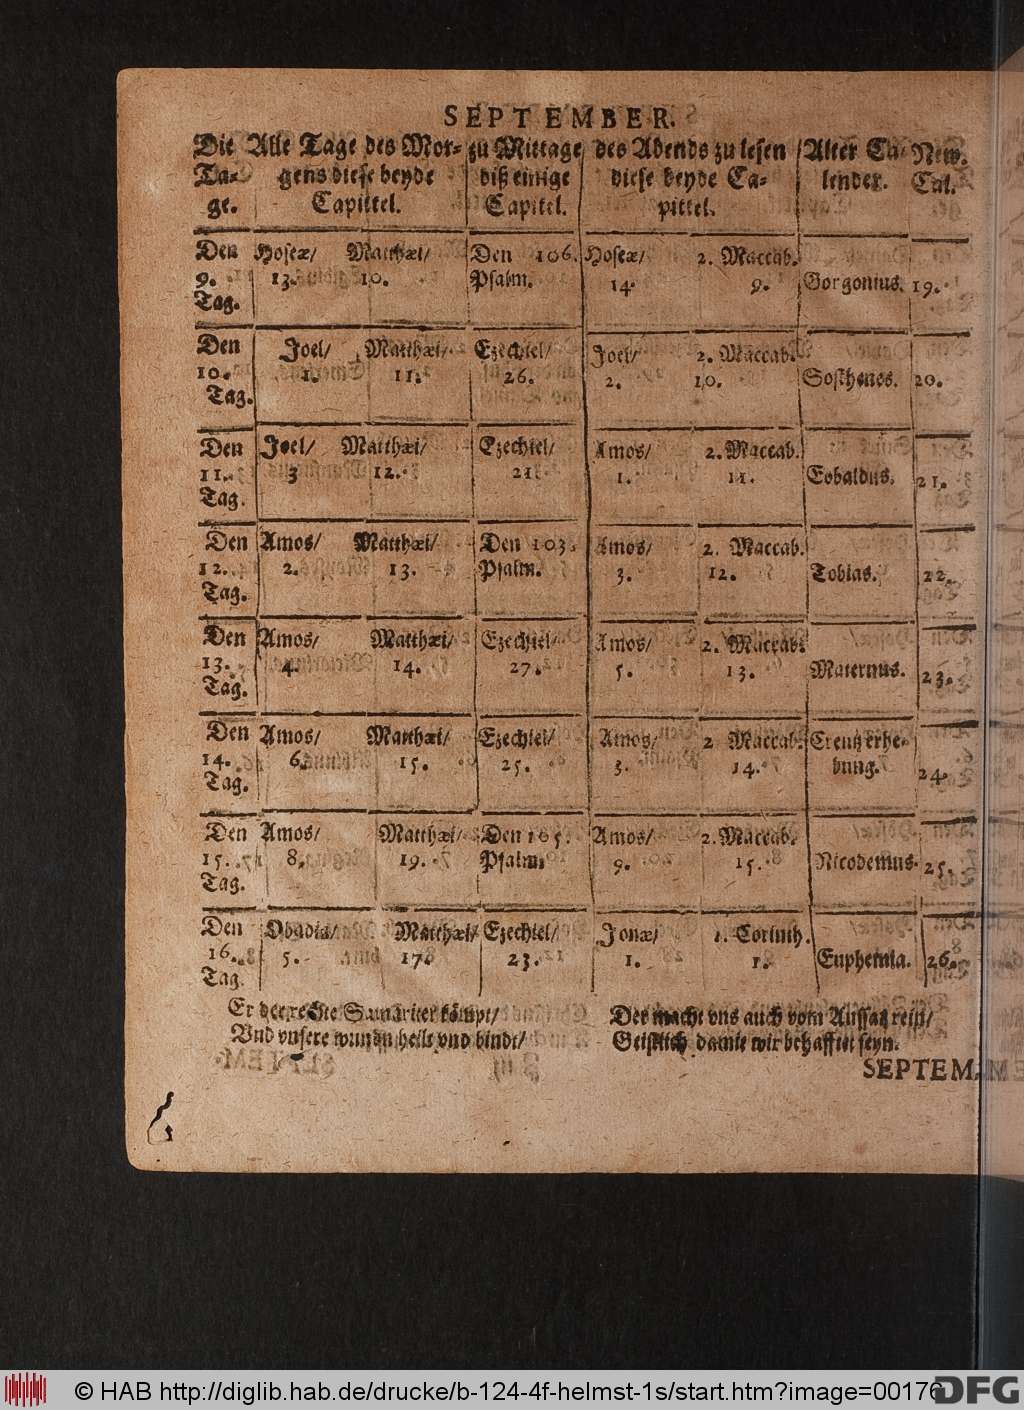 SEPTEMBER.
Die Alle Tage des Mor- zu Mittage des Abends zu lesen Alter Ca- New.
Ta- gens diese beyde diß einige diese beyde Ca- lender. Cal.
ge. Capittel. Capitel. pittel.
Den Hoseæ/ Matthæi/ Den 106. Hoseæ/ 2. Maccab.
9. 13. 10. Psalm. 14. 9. Gorgonius. 19.
Tag.
Den Joel/ Matthæi/ Ezechiel/ Joel/ 2. Maccab.
10. 1. 11. 26. 2. 10. Sosthenes. 20.
Tag.
Den Joel/ Matthæi/ Ezechiel/ Amos/ 2. Maccab.
11. 3 12. 21 1. 11. Eobaldus. 21.
Tag.
Den Amos/ Matthæi/ Den 103. Amos/ 2. Maccab.
12. 2. 13. Psalm. 3. 12. Tobias. 22.
Tag.
Den Amos/ Matthæi/ Ezechiel/ Amos/ 2. Maccab.
13. 4. 14. 27. 5. 13. Maternus. 23.
Tag.
Den Amos/ Matthæi/ Ezechiel/ Amos/ 2 Maccab. Creutz erhe-
14. 6. 15. 25. 14. bung. 24.
Tag.
Den Amos/ Matthæi/ Den 105. Amos/ 2. Maccab.
15. 8. 19. Psalm. 9. 15. Nicodemus. 25.
Tag.
Den Obadia/ Matthæi/ Ezechiel/ Jonæ/ 1. Corinth.
16. 5. 17 23. 1. 1. Euphemia. 26.
Tag.
Er der rechte Samariter kömpt/ Der macht vns auch vom Aussatz rein/
Vnd vnsere wundn heilt vnd bindt/ Geistlich damit wir behafftet seyn.
SEPTEM-
© HAB http://diglib.hab.de/drucke/b-124-4f-helmst-1s/start.htm?image=00176
DFG